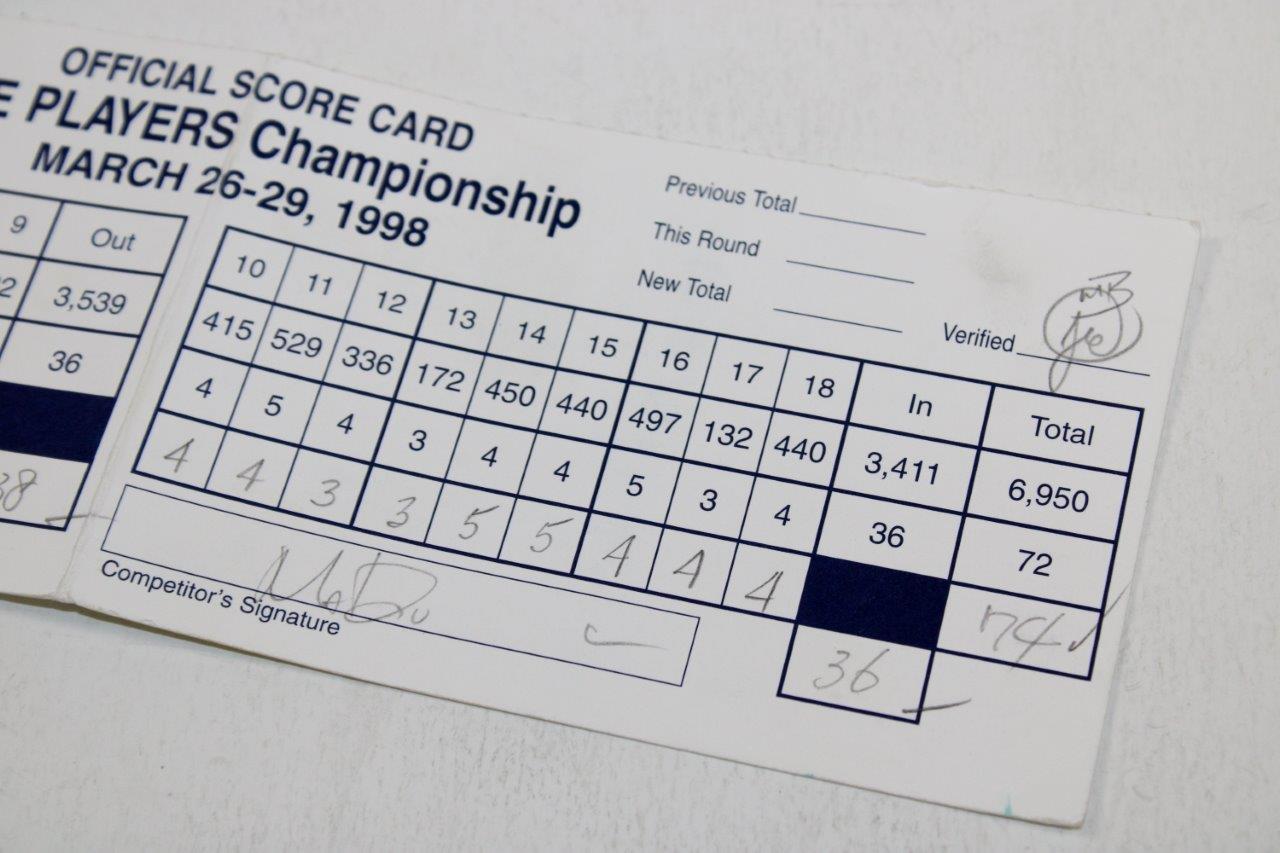 OFFICIAL SCORE CARD
E PLAYERS Championship
MARCH 26-29, 1998
Previous Total
This Round
New Total
Verified
MB
9 Out
2 3,539
36
38
10 11 12 13 14 15 16 17 18 In Total
415 529 336 172 450 440 497 132 440 3,411 6,950
4 5 4 3 4 4 5 3 4 36 72
4 4 3 3 5 5 4 4 4 74
36
Competitor's Signature